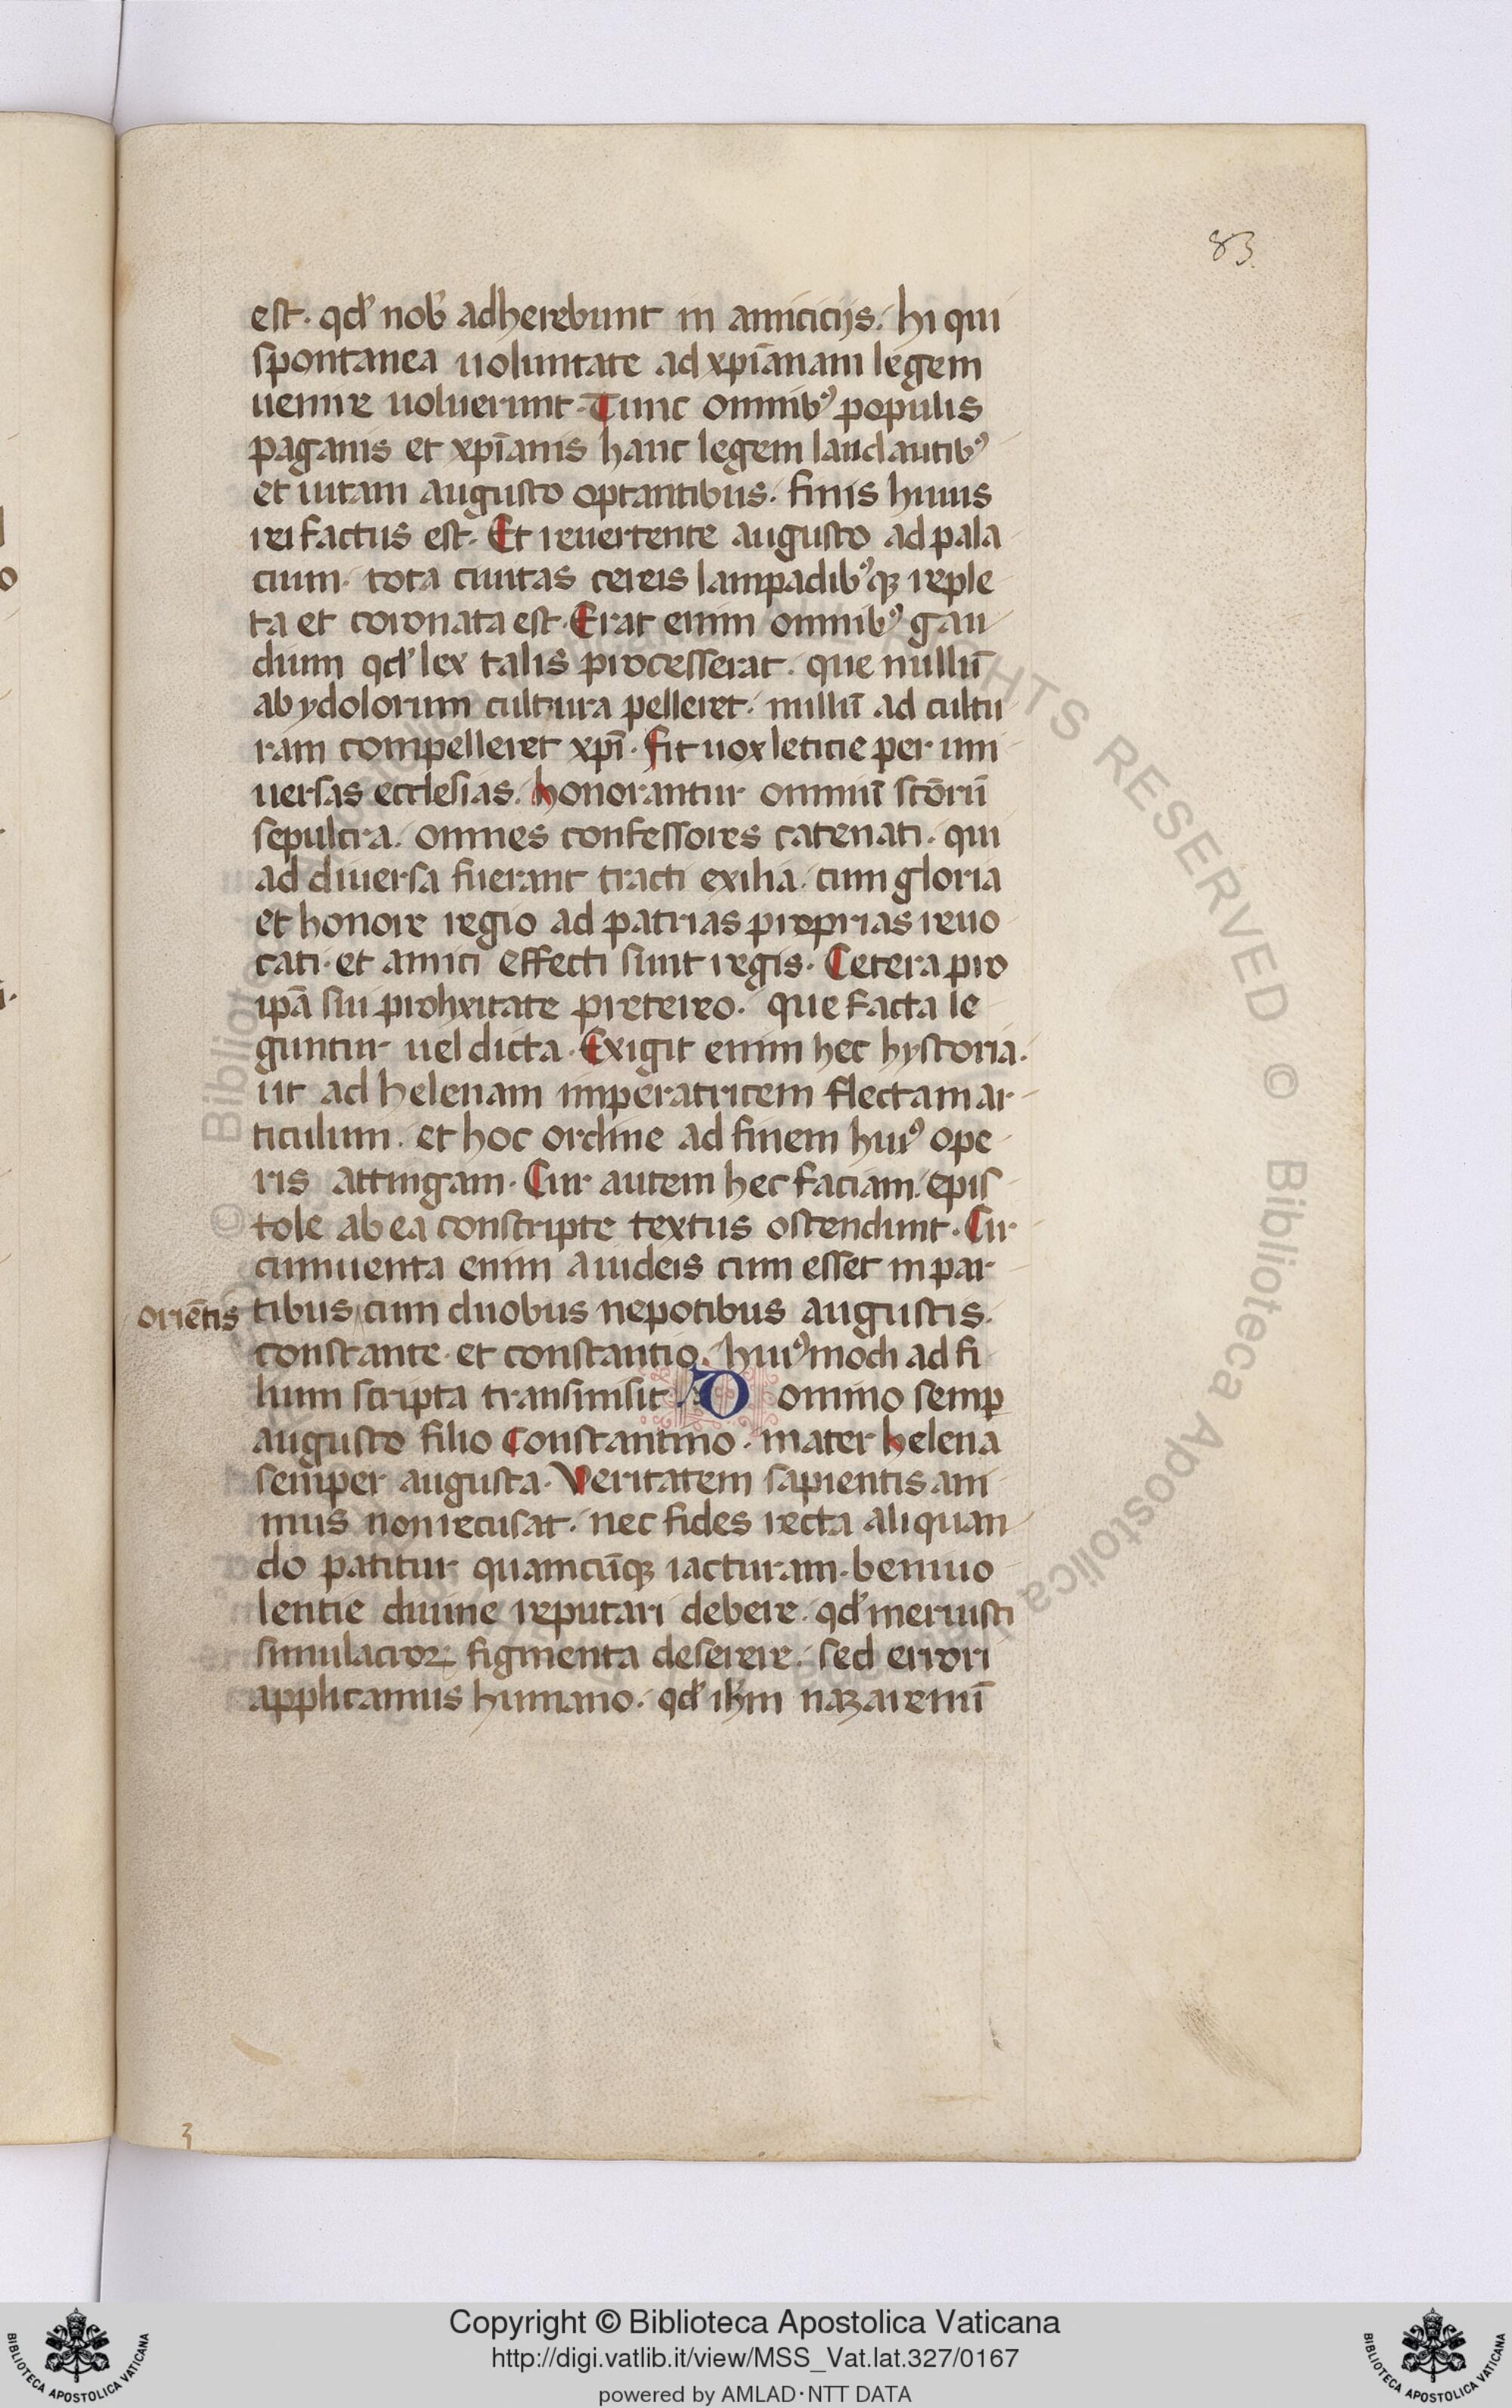 83
est. qd' nob' adherebunt in amicicijs. hi qui
spontanea uoluntate ad xp̄ianam legem
uenire uoluerunt. Tunc omnibꝰ populis
paganis et xp̄ianis hanc legem laudantibꝰ
et uitam augusto optantibus. finis huius
rei factus est. Et reuertente augusto ad pala
cium. tota ciuitas cereis lampadibꝰqꝫ reple
ta et coronata est. Erat enim omnibꝰ gau
dium qd' lex talis processerat. que nullū
ab ydolorum cultura pelleret. nullū ad cultu
ram compelleret xp̄i. fit uox leticie per uni
uersas ecclesias. honorantur omniū sc̄orū
sepulcra. omnes confessores catenati. qui
ad diuersa fuerant tracti exilia. cum gloria
et honore regio ad patrias proprias reuo
cati. et amici effecti sunt regis. Cetera pro
ip̄a sui prolixitate pretereo. que facta le
guntur uel dicta. Exigit enim hec hystoria.
ut ad helenam imperatricem flectam ar
ticulum. et hoc ordine ad finem huiꝰ ope
ris attingam. Cur autem hec faciam. epis
tole ab ea conscripte textus ostendunt. Cir
cumuenta enim a iudeis cum esset in par
oriētis tibus cum duobus nepotibus augustis.
constante. et constantio. huiꝰmodi ad fi
lium scripta transmisit. Domino semꝑ
augusto filio Constantino. mater helena
semper augusta. Veritatem sapientis ani
mus non recusat. nec fides recta aliquan
do patitur quamcūqꝫ iacturam. beniuo
lentie diuine reputari debere. qd' meruisti
simulacroꝝ figmenta deserere. sed errori
applicamus humano. qd' ihm nazarenū
3
© Biblioteca Apostolica Vaticana
RIGHTS RESERVED © Biblioteca Apostolica
Copyright © Biblioteca Apostolica Vaticana
http://digi.vatlib.it/view/MSS_Vat.lat.327/0167
powered by AMLAD·NTT DATA
BIBLIOTECA APOSTOLICA VATICANA
BIBLIOTECA APOSTOLICA VATICANA